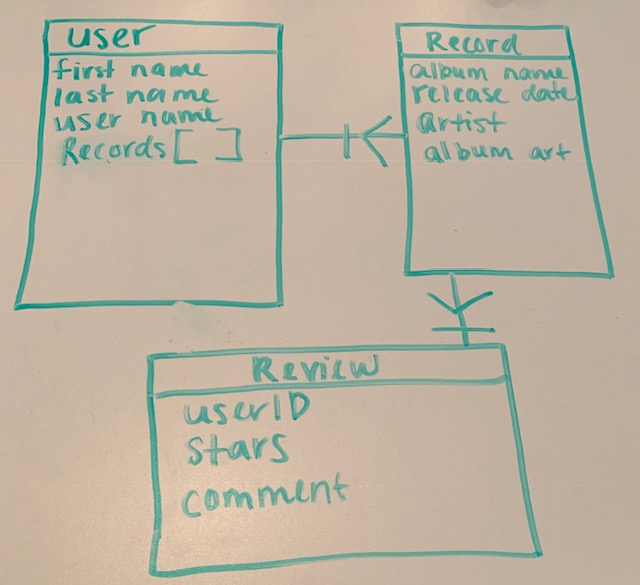 user
first name
last name
user name
Records [ ]
Record
album name
release date
artist
album art
Review
userID
stars
comment